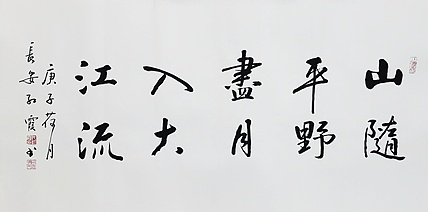 山隨
平野
盡月
入大
江流
庚子荷月
長安霞书